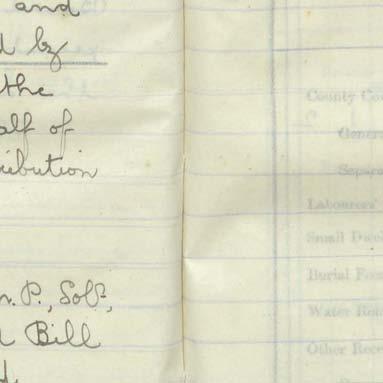 and
d by
the
alf of
ribution
n. P., Solr,
d Bill
d.
County Cou
General
Separa
Labourers'
Small Dwel
Burial
Water
Other Rece